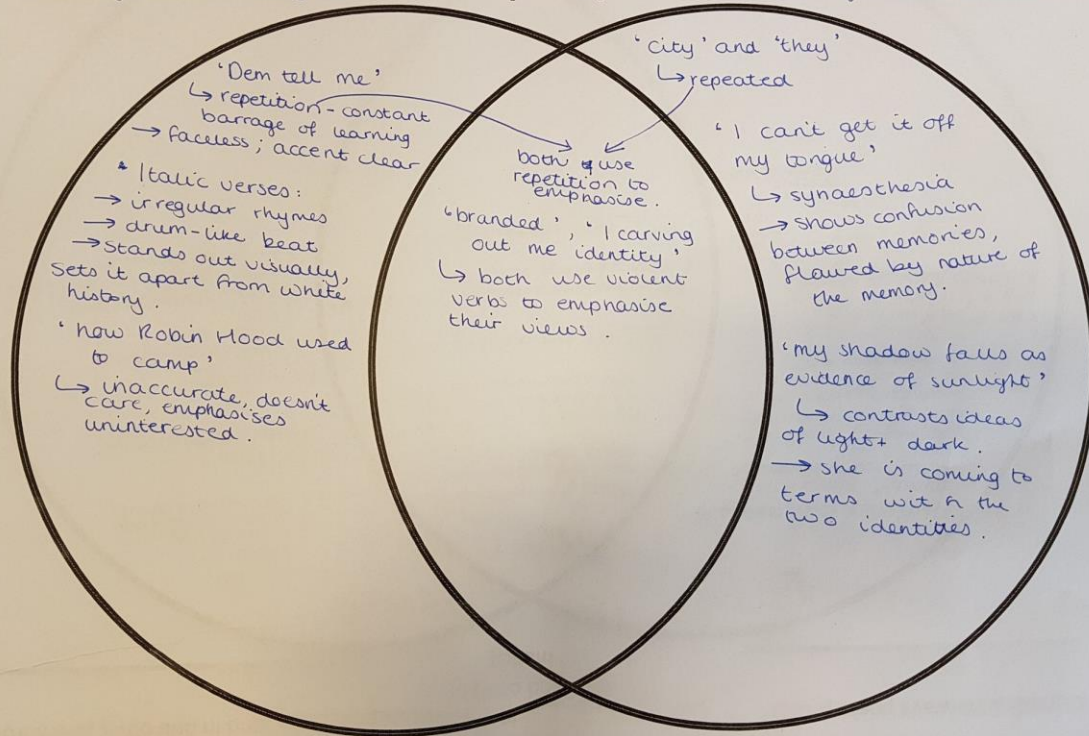 'Dem tell me'
↳ repetition - constant
barrage of learning
→ faceless; accent clear
* Italic verses:
→ irregular rhymes
→ drum-like beat
→ stands out visually,
sets it apart from white
history.
'how Robin Hood used
to camp'
↳ inaccurate, doesn't
care, emphasises
uninterested.
both use
repetition to
emphasise.
'branded', 'I carving
out me identity'
↳ both use violent
verbs to emphasise
their views.
'city' and 'they'
↳ repeated
'I can't get it off
my tongue'
↳ synaesthesia
→ shows confusion
between memories,
flawed by nature of
the memory.
'my shadow falls as
evidence of sunlight'
↳ contrasts ideas
of light + dark.
→ she is coming to
terms with the
two identities.